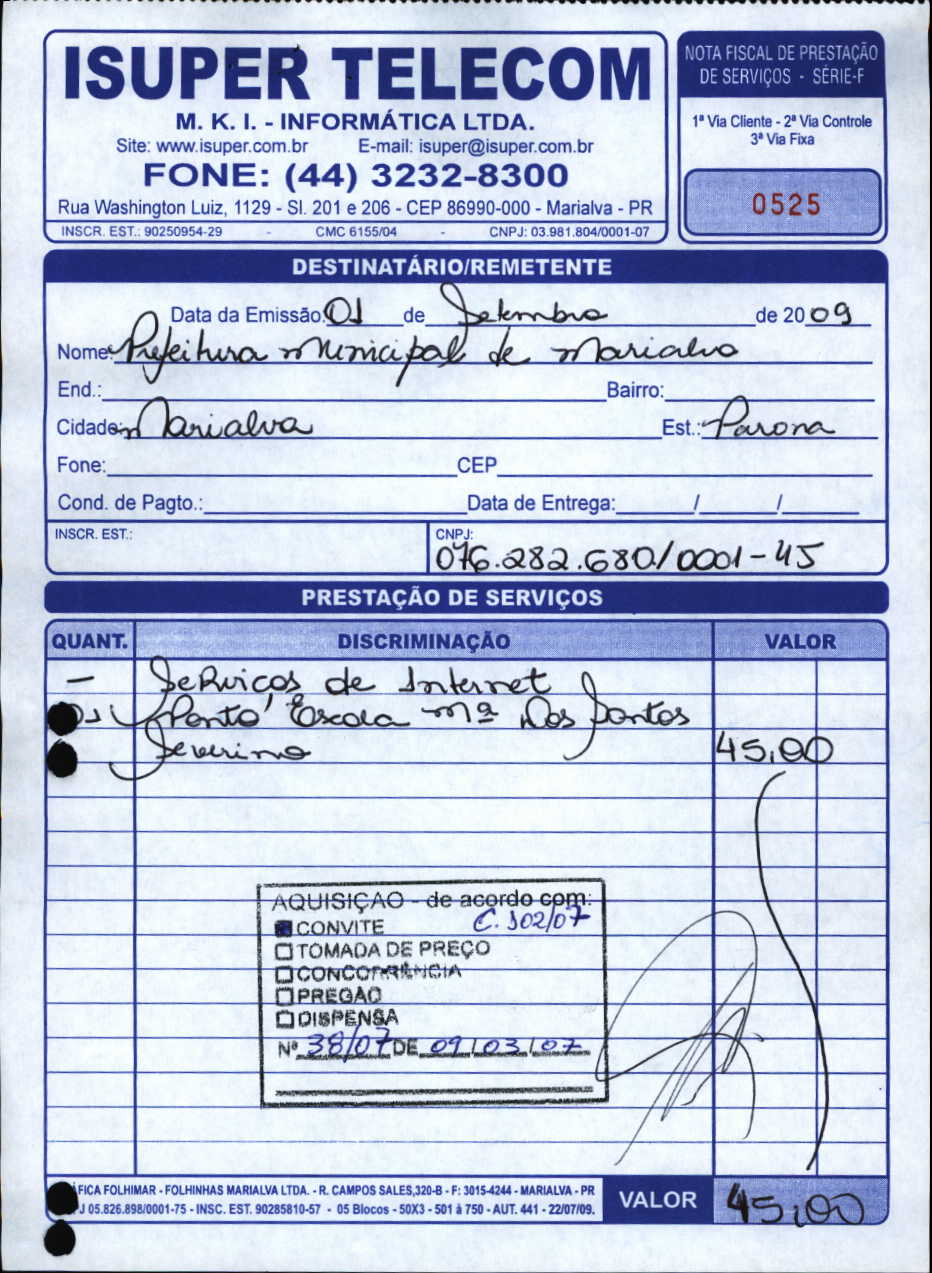 ISUPER TELECOM
M. K. I. - INFORMÁTICA LTDA.
Site: www.isuper.com.br E-mail: isuper@isuper.com.br
FONE: (44) 3232-8300
Rua Washington Luiz, 1129 - Sl. 201 e 206 - CEP 86990-000 - Marialva - PR
INSCR. EST.: 90250954-29 - CMC 6155/04 - CNPJ: 03.981.804/0001-07
NOTA FISCAL DE PRESTAÇÃO
DE SERVIÇOS - SÉRIE-F
1ª Via Cliente - 2ª Via Controle
3ª Via Fixa
0525
DESTINATÁRIO/REMETENTE
Data da Emissão: 01 de Setembro de 2009
Nome: Prefeitura Municipal de Marialva
End.: Bairro:
Cidade: Marialva Est.: Parona
Fone: CEP
Cond. de Pagto.: Data de Entrega: / /
INSCR. EST.: CNPJ:
076.282.680/0001-45
PRESTAÇÃO DE SERVIÇOS
QUANT. DISCRIMINAÇÃO VALOR
- Serviços de Internet
01 Ponto Escola Mª Dos Santos
Severino 45,00
AQUISIÇÃO - de acordo com:
CONVITE C. 102/07
TOMADA DE PREÇO
CONCORRÊNCIA
PREGÃO
DISPENSA
Nº 38/07 DE 09/03/07
FICA FOLHIMAR - FOLHINHAS MARIALVA LTDA. - R. CAMPOS SALES,320-B - F: 3015-4244 - MARIALVA - PR
J 05.826.898/0001-75 - INSC. EST. 90285810-57 - 05 Blocos - 50X3 - 501 à 750 - AUT. 441 - 22/07/09.
VALOR 45,00